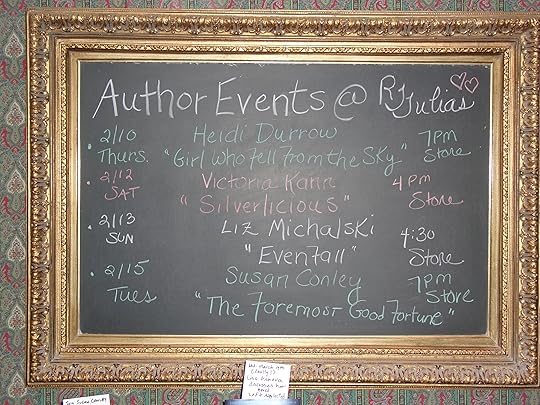 Author Events @ RJ Julias
• 2/10 Heidi Durrow 7PM
Thurs. "Girl Who Fell From the Sky" Store
• 2/12 Victoria Kann 4 PM
SAT "Silverlicious" Store
• 2/13 Liz Michalski 4:30
SUN "Evenfall" Store
• 2/15 Susan Conley 7pm
Tues "The Foremost Good Fortune" Store